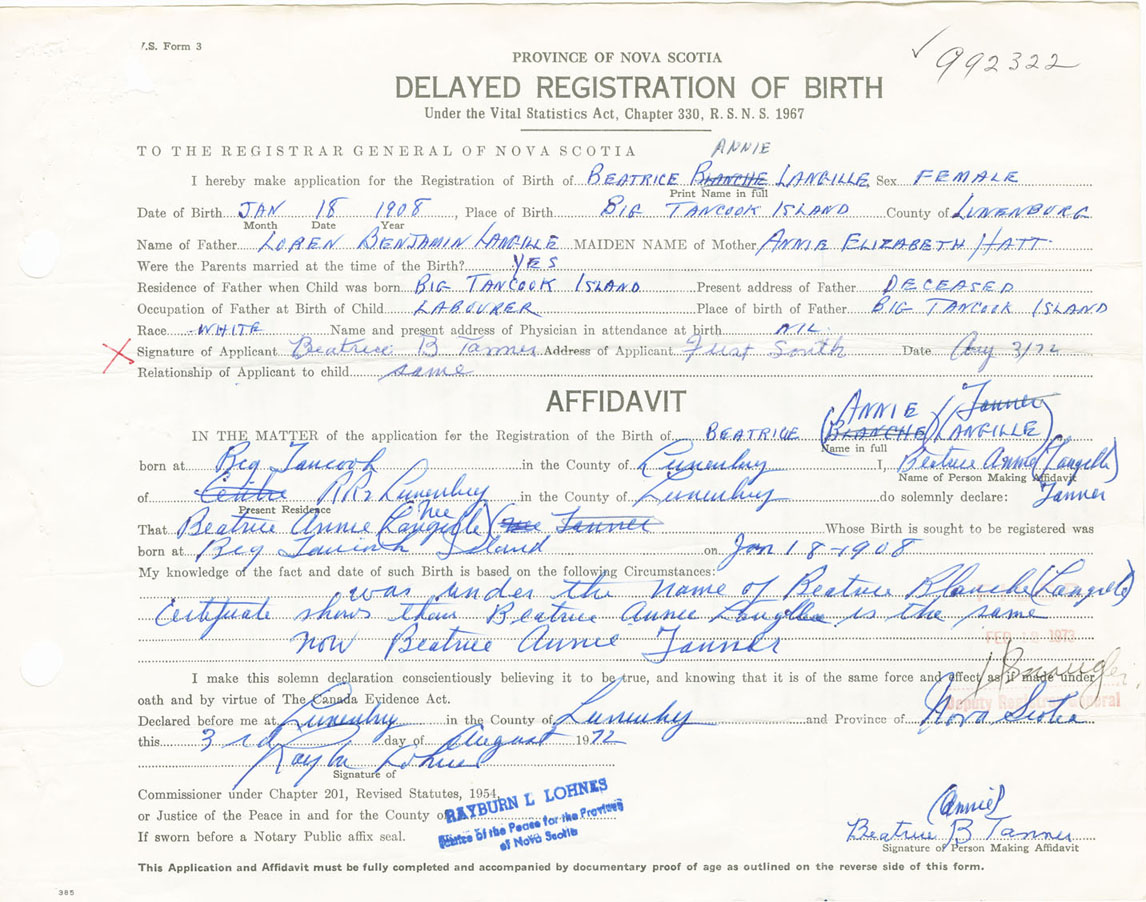 V.S. Form 3
✓ 992322
PROVINCE OF NOVA SCOTIA
DELAYED REGISTRATION OF BIRTH
Under the Vital Statistics Act, Chapter 330, R.S.N.S. 1967
TO THE REGISTRAR GENERAL OF NOVA SCOTIA ANNIE
I hereby make application for the Registration of Birth of BEATRICE BLANCHE LANGILLE Sex FEMALE
Print Name in full
Date of Birth JAN 18 1908, Place of Birth BIG TANCOOK ISLAND County of LUNENBURG
Month Date Year
Name of Father LOREN BENJAMIN LANGILLE MAIDEN NAME of Mother ANNIE ELIZABETH HATT
Were the Parents married at the time of the Birth? YES
Residence of Father when Child was born BIG TANCOOK ISLAND Present address of Father DECEASED
Occupation of Father at Birth of Child LABOURER Place of birth of Father BIG TANCOOK ISLAND
Race WHITE Name and present address of Physician in attendance at birth NIL
X Signature of Applicant Beatrice B Tanner Address of Applicant First South Date Aug 3/72
Relationship of Applicant to child same
AFFIDAVIT
ANNIE Tanner
IN THE MATTER of the application for the Registration of the Birth of BEATRICE (BLANCHE) (LANGILLE)
Name in full
born at Big Tancook in the County of Lunenburg I, Beatrice Annie (Langille)
Name of Person Making Affidavit
of Centre RR2 Lunenburg in the County of Lunenburg do solemnly declare: Tanner
Present Residence
nee
That Beatrice Annie (Langille) (nee Tanner Whose Birth is sought to be registered was
born at Big Tancook Island on Jan 18-1908
My knowledge of the fact and date of such Birth is based on the following Circumstances:
was under the name of Beatrice Blanche (Langille)
Certificate shows than Beatrice Annie Langille is the same
now Beatrice Annie Tanner
FEB 1973
I make this solemn declaration conscientiously believing it to be true, and knowing that it is of the same force and effect as if made under
oath and by virtue of The Canada Evidence Act.
Deputy Registrar General
Declared before me at Lunenburg in the County of Lunenburg and Province of Nova Scotia
this 3rd day of August 1972
Rayburn Lohnes
Signature of
Commissioner under Chapter 201, Revised Statutes, 1954,
or Justice of the Peace in and for the County of
If sworn before a Notary Public affix seal.
RAYBURN L LOHNES
Justice of the Peace for the Province
of Nova Scotia
(Annie)
Beatrice B Tanner
Signature of Person Making Affidavit
This Application and Affidavit must be fully completed and accompanied by documentary proof of age as outlined on the reverse side of this form.
385